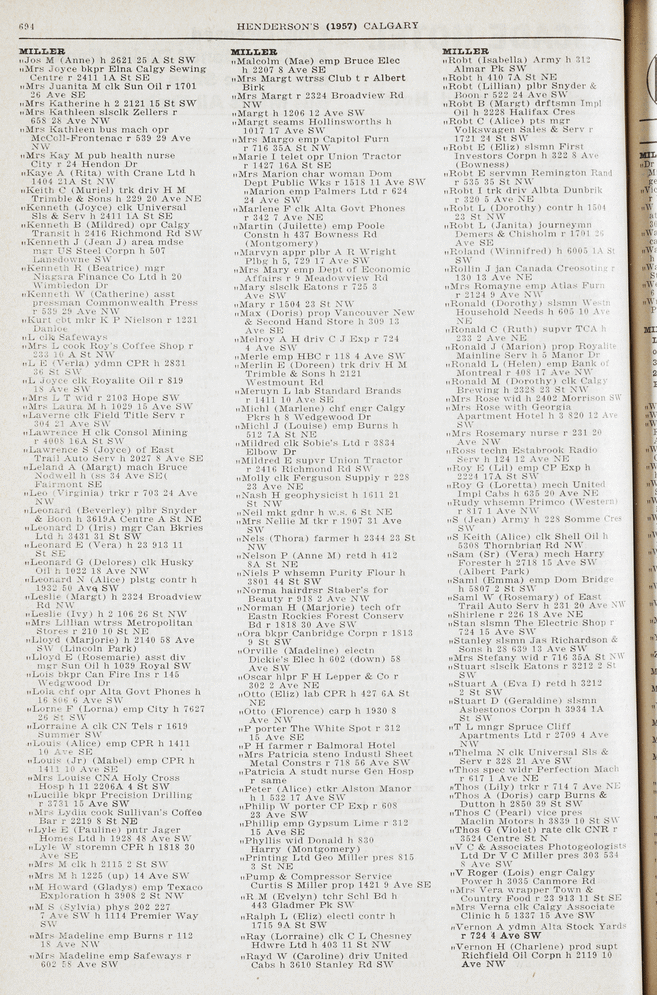 694
HENDERSON'S (1957) CALGARY
MILLER
„Jos M (Anne) h 2621 25 A St SW
„Mrs Joyce bkpr Elna Calgy Sewing
Centre r 2411 1A St SE
„Mrs Juanita M clk Sun Oil r 1701
26 Ave SE
„Mrs Katherine h 2 2121 15 St SW
„Mrs Kathleen slsclk Zellers r
658 28 Ave NW
„Mrs Kathleen bus mach opr
McColl-Frontenac r 539 29 Ave
NW
„Mrs Kay M pub health nurse
City r 24 Hendon Dr
„Kaye A (Rita) with Crane Ltd h
1404 21A St NW
„Keith C (Muriel) trk driv H M
Trimble & Sons h 229 20 Ave NE
„Kenneth (Joyce) clk Universal
Sls & Serv h 2411 1A St SE
„Kenneth B (Mildred) opr Calgy
Transit h 2416 Richmond Rd SW
„Kenneth J (Jean J) area mdse
mgr US Steel Corpn h 507
Lansdowne SW
„Kenneth R (Beatrice) mgr
Niagara Finance Co Ltd h 20
Wimbledon Dr
„Kenneth W (Catherine) asst
pressman Commonwealth Press
r 539 29 Ave NW
„Kurt cbt mkr K P Nielson r 1231
Danloe
„L clk Safeways
„Mrs L cook Roy's Coffee Shop r
233 10 A St NW
„L E (Verla) ydmn CPR h 2831
36 St SW
„L Joyce clk Royalite Oil r 819
18 Ave SW
„Mrs L T wid r 2103 Hope SW
„Mrs Laura M h 1029 15 Ave SW
„Laverne clk Field Title Serv r
304 21 Ave SW
„Lawrence H clk Consol Mining
r 4008 16A St SW
„Lawrence S (Joyce) of East
Trail Auto Serv h 2027 8 Ave SE
„Leland A (Margt) mach Bruce
Nodwell h (ss 34 Ave SE(
Fairmont SE
„Leo (Virginia) trkr r 703 24 Ave
NW
„Leonard (Beverley) plbr Snyder
& Boon h 3619A Centre A St NE
„Leonard D (Iris) mgr Can Bkries
Ltd h 3431 31 St SW
„Leonard E (Vera) h 23 913 11
St SE
„Leonard G (Delores) clk Husky
Oil h 1022 18 Ave NW
„Leonard N (Alice) plstg contr h
1932 50 Ave SW
„Leslie (Margt) h 2324 Broadview
Rd NW
„Leslie (Ivy) h 2 106 26 St NW
„Mrs Lillian wtrss Metropolitan
Stores r 210 10 St NE
„Lloyd (Marjorie) h 2140 58 Ave
SW (Lincoln Park)
„Lloyd E (Rosemarie) asst div
mgr Sun Oil h 1039 Royal SW
„Lois bkpr Can Fire Ins r 145
Wedgwood Dr
„Lola chf opr Alta Govt Phones h
16 806 6 Ave SW
„Lorne F (Lorna) emp City h 7627
26 St SW
„Lorraine A clk CN Tels r 1619
Summer SW
„Louis (Alice) emp CPR h 1411
10 Ave SE
„Louis (Jr) (Mabel) emp CPR h
1411 10 Ave SE
„Mrs Louise CNA Holy Cross
Hosp h 11 2206A 4 St SW
„Lucille bkpr Precision Drilling
r 3731 15 Ave SW
„Mrs Lydia cook Sullivan's Coffee
Bar r 2219 8 St NE
„Lyle E (Pauline) pntr Jager
Homes Ltd h 1928 48 Ave SW
„Lyle W storemn CPR h 1818 30
Ave SE
„Mrs M clk h 2115 2 St SW
„Mrs M h 1225 (up) 14 Ave SW
„M Howard (Gladys) emp Texaco
Exploration h 3908 2 St NW
„M S (Sylvia) phys 202 227
7 Ave SW h 1114 Premier Way
SW
„Mrs Madeline emp Burns r 112
18 Ave NW
„Mrs Madeline emp Safeways r
602 58 Ave SW
MILLER
„Malcolm (Mae) emp Bruce Elec
h 2207 8 Ave SE
„Mrs Margt wtrss Club t r Albert
Birk
„Mrs Margt r 2324 Broadview Rd
NW
„Margt h 1206 12 Ave SW
„Margt seams Hollinsworths h
1017 17 Ave SW
„Mrs Margo emp Capitol Furn
r 716 35A St NW
„Marie I telet opr Union Tractor
r 1427 16A St SE
„Mrs Marion char woman Dom
Dept Public Wks r 1518 11 Ave SW
„Marion emp Palmers Ltd r 624
24 Ave SW
„Marlene F clk Alta Govt Phones
r 342 7 Ave NE
„Martin (Juilette) emp Poole
Constn h 437 Bowness Rd
(Montgomery)
„Marvyn appr plbr A R Wright
Plbg h 5, 729 17 Ave SW
„Mrs Mary emp Dept of Economic
Affairs r 9 Meadowview Rd
„Mary slsclk Eatons r 725 3
Ave SW
„Mary r 1504 23 St NW
„Max (Doris) prop Vancouver New
& Second Hand Store h 309 13
Ave SE
„Melroy A H driv C J Exp r 724
4 Ave SW
„Merle emp HBC r 118 4 Ave SW
„Merlin E (Doreen) trk driv H M
Trimble & Sons h 2121
Westmount Rd
„Meruyn L lab Standard Brands
r 1411 10 Ave SE
„Michl (Marlene) chf engr Calgy
Pkrs h 8 Wedgewood Dr
„Michl J (Louise) emp Burns h
512 7A St NE
„Mildred clk Sobie's Ltd r 3834
Elbow Dr
„Mildred E supvr Union Tractor
r 2416 Richmond Rd SW
„Molly clk Ferguson Supply r 228
23 Ave NE
„Nash H geophysicist h 1611 21
St NW
„Neil mkt gdnr h w.s. 6 St NE
„Mrs Nellie M tkr r 1907 31 Ave
SW
„Nels (Thora) farmer h 2344 23 St
NW
„Nelson P (Anne M) retd h 412
8A St NE
„Niels P whsemn Purity Flour h
3801 44 St SW
„Norma hairdrsr Staber's for
Beauty r 918 2 Ave NW
„Norman H (Marjorie) tech ofr
Eastn Rockies Forest Conserv
Bd r 1818 30 Ave SW
„Ora bkpr Canbridge Corpn r 1813
9 St SW
„Orville (Madeline) electn
Dickie's Elec h 602 (down) 58
Ave SW
„Oscar hlpr F H Lepper & Co r
302 2 Ave NE
„Otto (Eliz) lab CPR h 427 6A St
NE
„Otto (Florence) carp h 1930 8
Ave NW
„P porter The White Spot r 312
15 Ave SE
„P H farmer r Balmoral Hotel
„Mrs Patricia steno Industl Sheet
Metal Constrs r 718 56 Ave SW
„Patricia A studt nurse Gen Hosp
r same
„Peter (Alice) ctkr Alston Manor
h 1 532 17 Ave SW
„Philip W porter CP Exp r 608
23 Ave SW
„Phillip emp Gypsum Lime r 312
15 Ave SE
„Phyllis wid Donald h 830
Harry (Montgomery)
„Printing Ltd Geo Miller pres 815
3 St NE
„Pump & Compressor Service
Curtis S Miller prop 1421 9 Ave SE
„R M (Evelyn) tchr Schl Bd h
443 Gladmer Pk SW
„Ralph L (Eliz) electl contr h
1715 9A St SW
„Ray (Lorraine) clk C L Chesney
Hdwre Ltd h 403 11 St NW
„Rayd W (Caroline) driv United
Cabs h 3610 Stanley Rd SW
MILLER
„Robt (Isabella) Army h 312
Almar Pk SW
„Robt h 410 7A St NE
„Robt (Lillian) plbr Snyder &
Boon r 522 24 Ave SW
„Robt B (Margt) drftsmn Impl
Oil h 2228 Halifax Cres
„Robt C (Alice) pts mgr
Volkswagen Sales & Serv r
1721 24 St SW
„Robt E (Eliz) slsmn First
Investors Corpn h 322 8 Ave
(Bowness)
„Robt E servmn Remington Rand
r 535 35 St NW
„Robt I trk driv Albta Dunbrik
r 320 5 Ave NE
„Robt L (Dorothy) contr h 1504
23 St NW
„Robt L (Janita) journeymn
Demers & Chisholm r 1701 26
Ave SE
„Roland (Winnifred) h 6005 1A St
SW
„Rollin J jan Canada Creosoting r
130 13 Ave NE
„Mrs Romayne emp Atlas Furn
r 2124 9 Ave NW
„Ronald (Dorothy) slsmn Westn
Household Needs h 605 10 Ave
NE
„Ronald C (Ruth) supvr TCA h
233 2 Ave NE
„Ronald J (Marion) prop Royalite
Mainline Serv h 5 Manor Dr
„Ronald L (Helen) emp Bank of
Montreal r 408 17 Ave NW
„Ronald M (Dorothy) clk Calgy
Brewing h 2328 23 St NW
„Mrs Rose wid h 2402 Morrison SW
„Mrs Rose with Georgia
Apartment Hotel h 3 820 12 Ave
SW
„Mrs Rosemary nurse r 231 20
Ave NW
„Ross techn Estabrook Radio
Serv h 124 12 Ave NE
„Roy E (Lil) emp CP Exp h
2224 17A St SW
„Roy G (Loretta) mech United
Impl Cabs h 635 20 Ave NE
„Rudy whsemn Primco (Western)
r 817 1 Ave NW
„S (Jean) Army h 228 Somme Cres
SW
„S Keith (Alice) clk Shell Oil h
5308 Thornbriar Rd NW
„Sam (Sr) (Vera) mech Harry
Forester h 2718 15 Ave SW
(Albert Park)
„Saml (Emma) emp Dom Bridge
h 5807 2 St SW
„Saml W (Rosemary) of East
Trail Auto Serv h 231 20 Ave NW
„Shirlene r 226 18 Ave NE
„Stan slsmn The Electric Shop r
724 15 Ave SW
„Stanley slsmn Jas Richardson &
Sons h 28 639 13 Ave SW
„Mrs Stefany wid r 716 35A St NW
„Stuart slsclk Eatons r 3212 2 St
SW
„Stuart A (Eva I) retd h 3212
2 St SW
„Stuart D (Geraldine) slsmn
Asbestonos Corpn h 3934 1A
St SW
„T L mngr Spruce Cliff
Apartments Ltd r 2709 4 Ave
NW
„Thelma N clk Universal Sls &
Serv r 328 21 Ave SW
„Thos spec wldr Perfection Mach
r 617 1 Ave NE
„Thos (Lily) trkr r 714 7 Ave NE
„Thos A (Doris) carp Burns &
Dutton h 2850 39 St SW
„Thos C (Pearl) vice pres
Maclin Motors h 3839 10 St SW
„Thos G (Violet) rate clk CNR r
3524 Centre St N
„V C & Associates Photogeologists
Ltd Dr V C Miller pres 303 534
8 Ave SW
„V Roger (Lois) engr Calgy
Power h 3035 Canmore Rd
„Mrs Vera wrapper Town &
Country Food r 23 913 11 St SE
„Mrs Verma clk Calgy Associate
Clinic h 5 1337 15 Ave SW
„Vernon A ydmn Alta Stock Yards
r 724 4 Ave SW
„Vernon H (Charlene) prod supt
Richfield Oil Corpn h 2119 10
Ave NW